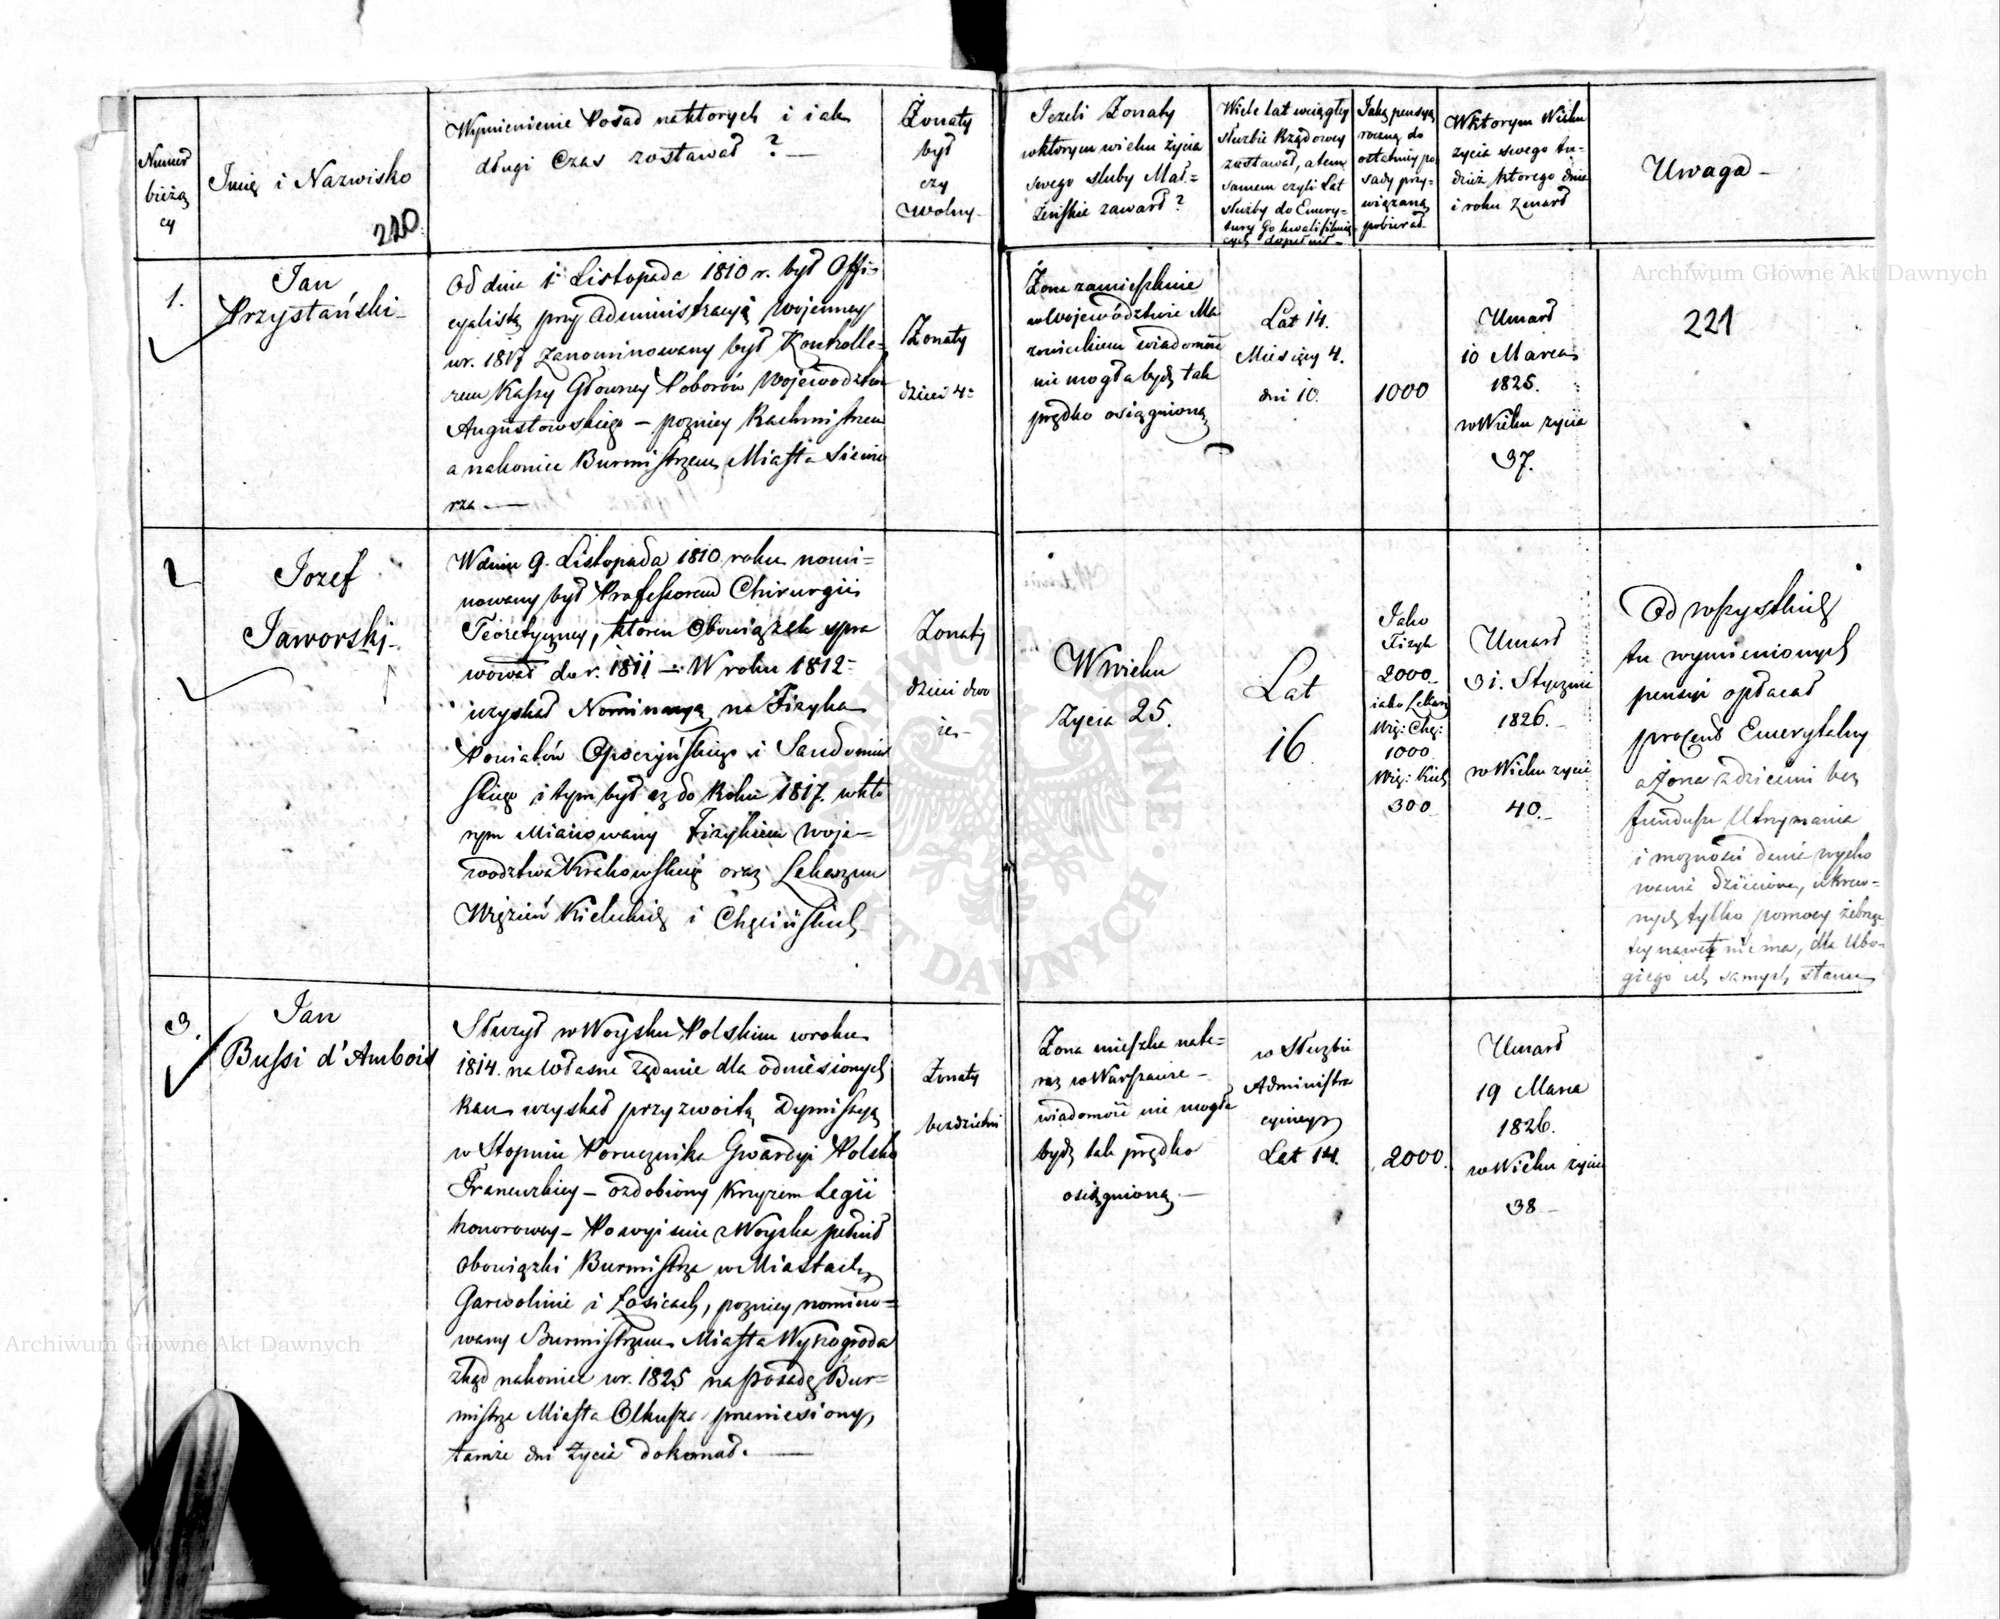 Numer
bieżą
cy
Imię i Nazwisko
220
Wymienienie Posad na których i iak
długi Czas zostawał ? —
Żonaty
był
czy
Wolny -
Jeżeli Żonaty
w którym wieku życia
swego śluby Mał=
żeńskie zawarł ?
Wiele lat w ciągłey
służbie Rządowey
zostawał, a tem
samem czyli Lat
służby do Emery-
tury Go kwalifikuią
cych dopełnił -
Jaką pensyą
roczną do
ostatniey po
sady przy-
wiązaną
pobierał
W którym Wieku
życia swego tu-
dzież którego dnia
i roku Zmarł
Uwaga -
1.
Jan
Przystański -
Od dnia 1 Listopada 1810 r. był Offi-
cyalistą przy Administracyi Woienney
w r. 1817 Zanominowany był Kontrolle-
rem Kassy Główney Poborów Województwa
Augustowskiego - pozniey Rachmistrzem
a nakoniec Burmistrzem Miasta Siewie
rza —
Żonaty
dzieci 4-
Żona zamieszkuie
w Województwie Ma
zowieckiem wiadomość
nie mogła bydź tak
prędko osiągnioną
Lat 14.
Miesięcy 4.
dni 10.
1000
Umarł
10 Marca
1825.
w Wieku życia
37.
221
2
Jozef
Jaworski -
W dniu 9. Listopada 1810 roku nomi-
nowany był Professorem Chirurgii
Teoretyczney, który Obowiązek spra
wował do r. 1811 - W roku 1812-
uzyskał Nominacyą na Fizyka
Powiatów Opoczyńskiego i Sandomir
skiego i tym był aż do Roku 1817. w któ
rym Mianowany Fizykiem Woje-
wodztwa Krakowskiego oraz Lekarzem
Więzień Kieleckich i Chęcińskich
Żonaty
dzieci dwo
ie -
W wieku
Życia 25.
Lat
16
Jako
Fizyk
2000
iako Lekarz
Wię: Chę:
1000
Wię: Kiel
300
Umarł
31. Stycznia
1826. -
w Wieku życia
40. -
Od wszystkich
tu wymienionych
pensyi opłacał
procent Emerytalny
a Żona z dziećmi bez
funduszu Utrzymania
i możności dania wycho
wania dzieciom, u krew-
nych tylko pomocy żebrze
tey nawet nie ma, dla Ubo-
giego ich samych stanu
3.
Jan
Bussi d'Ambois
Służył w Woysku Polskim w roku
1814. na własne żądanie dla odniesionych
Ran uzyskał przyzwoitą Dymissyą
w Stopniu Porucznika Gwardyi Polsko
Francuzkiey - ozdobiony Krzyżem Legii
honorowey - Po wyiściu z Woyska pełnił
obowiązki Burmistrza w Miastach
Garwolinie i Łosicach, pozniey nomino-
wany Burmistrzem Miasta Wyszogroda
zkąd nakoniec w r. 1825 na posadę Bur-
mistrza Miasta Olkusza przeniesiony,
tamże dni życia dokonał. —
Żonaty
bezdzietni
Żona mieszka nate-
raz w Warszawie -
wiadomość nie mogła
bydź tak prędko
osiągnioną -
w Służbie
Administra
cyiney
Lat 14.
2000
Umarł
19 Marca
1826.
w Wieku życia
38 -
Archiwum Główne Akt Dawnych
Archiwum Główne Akt Dawnych